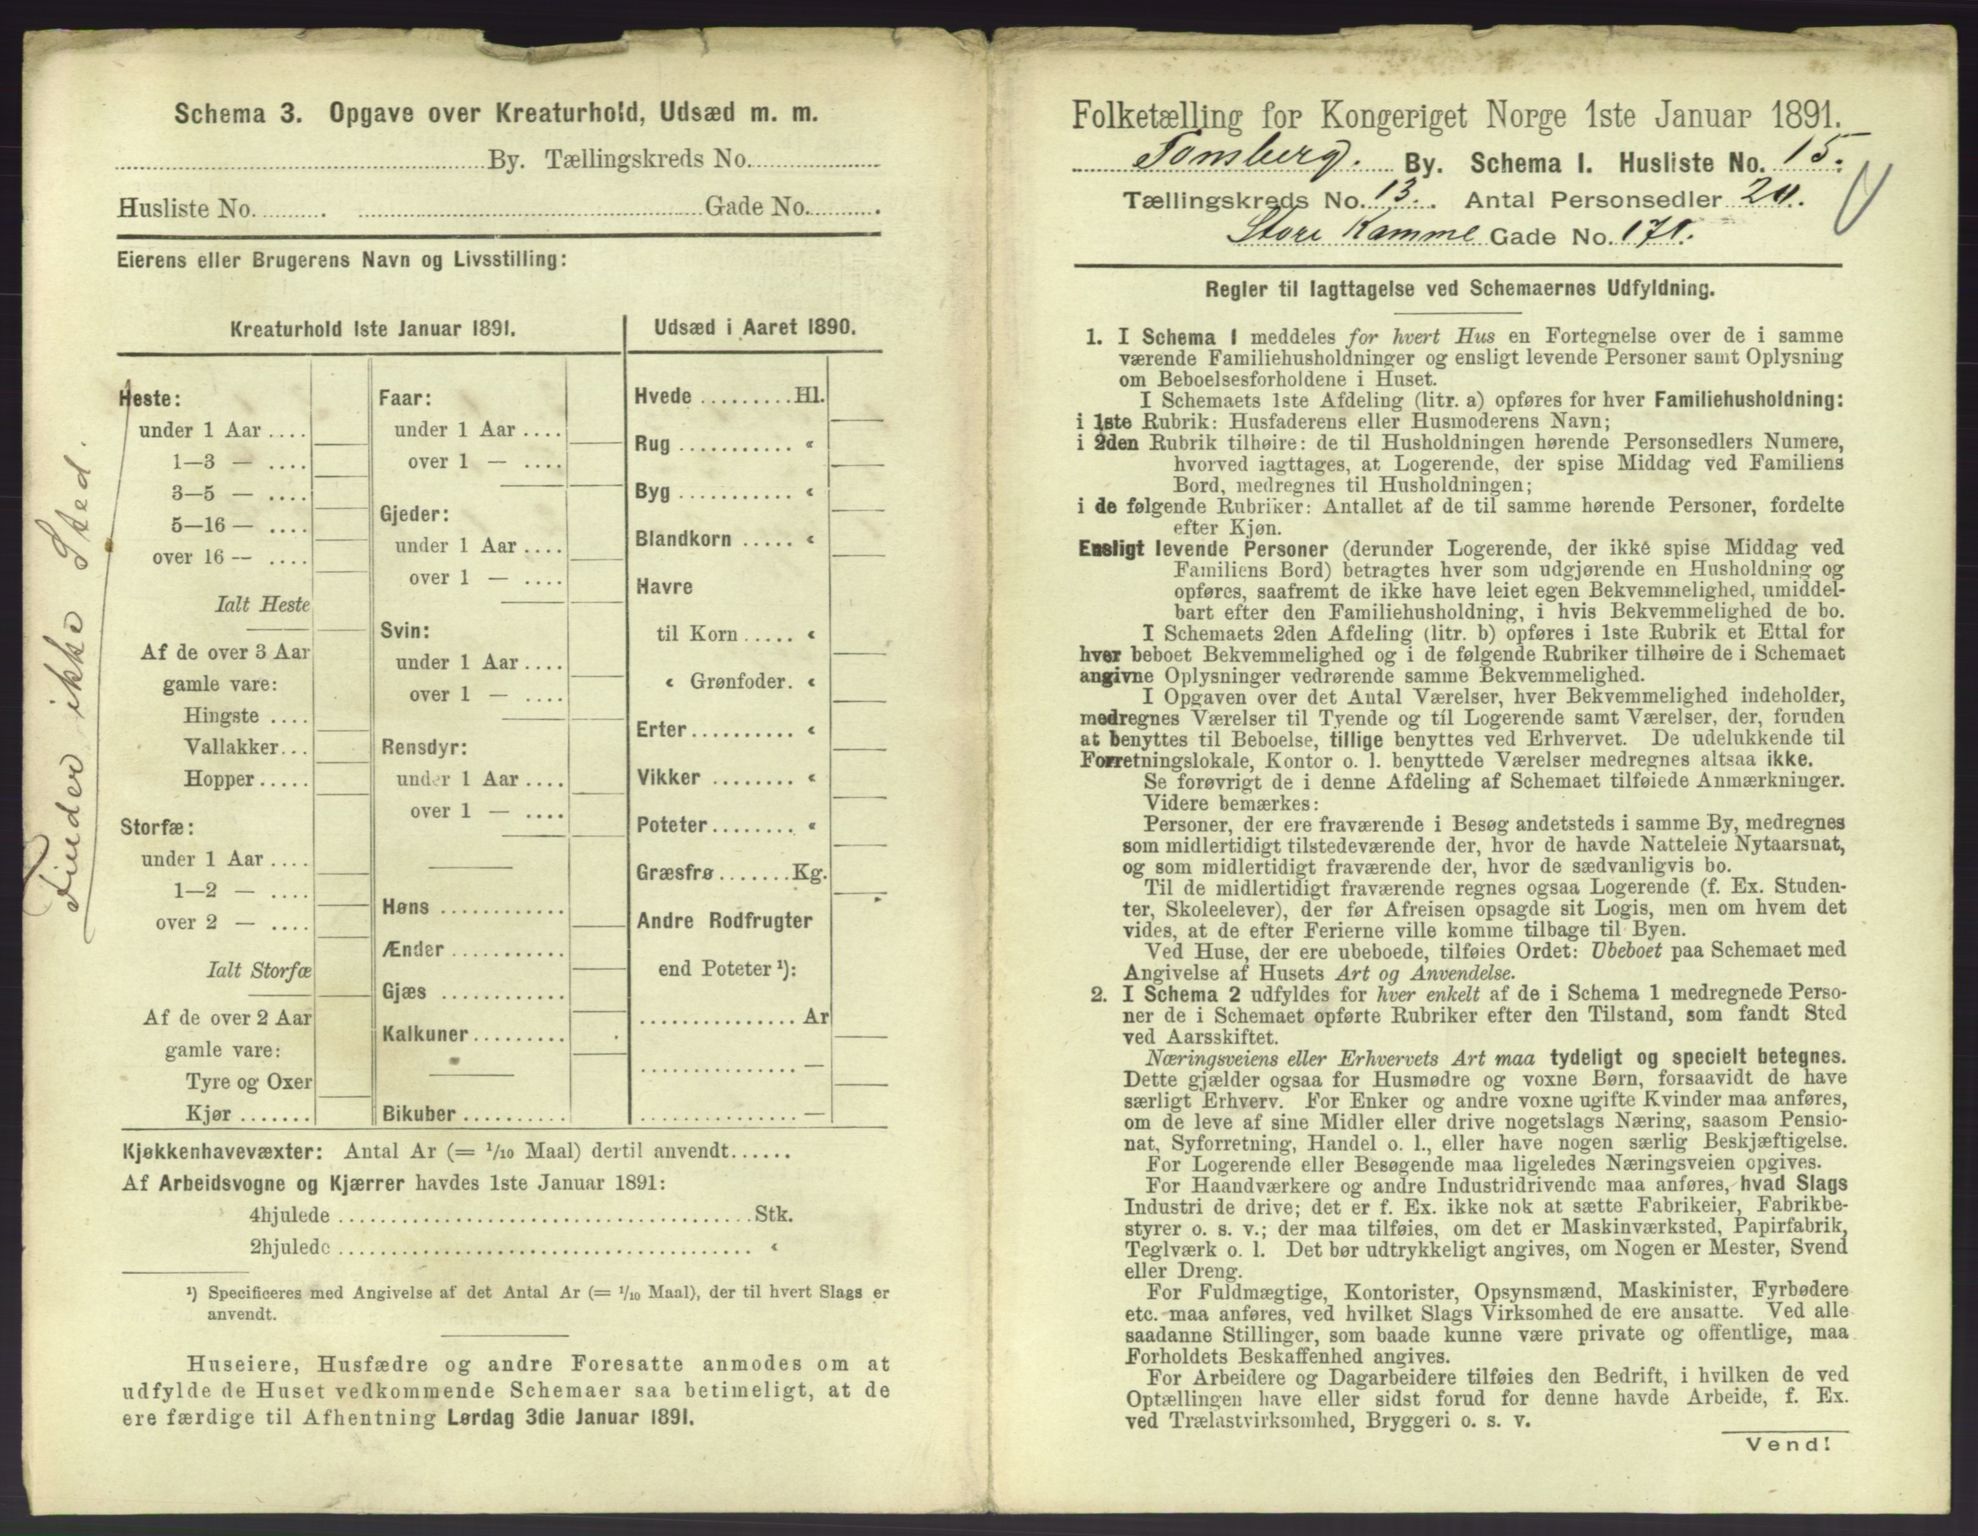 Schema 3. Opgave over Kreaturhold, Udsæd m. m.
By. Tællingskreds No.
Husliste No. Gade No.
Eierens eller Brugerens Navn og Livsstilling:
Kreaturhold 1ste Januar 1891.
Heste:
under 1 Aar ....
1—3 — ....
3—5 — ....
5—16 — ....
over 16 — ....
Ialt Heste
Af de over 3 Aar
gamle vare:
Hingste ....
Vallakker...
Hopper.....
Storfæ:
under 1 Aar ....
1—2 — ....
over 2 — ....
Ialt Storfæ
Af de over 2 Aar
gamle vare:
Tyre og Oxer
Kjør .......
Faar:
under 1 Aar ....
over 1 — ....
Gjeder:
under 1 Aar ....
over 1 — ....
Svin:
under 1 Aar ....
over 1 — ....
Rensdyr:
under 1 Aar ....
over 1 — ....
Høns ............
Ænder ...........
Gjæs ............
Kalkuner.........
Bikuber ..........
Udsæd i Aaret 1890.
Hvede .........Hl.
Rug ........... «
Byg ........... «
Blandkorn ..... «
Havre
til Korn ..... «
« Grønfoder. «
Erter.......... «
Vikker ........ «
Poteter........ «
Græsfrø.......Kg.
Andre Rodfrugter
end Poteter ¹):
............... Ar
............... —
............... —
Kjøkkenhavevæxter: Antal Ar (= 1/10 Maal) dertil anvendt......
Af Arbeidsvogne og Kjærrer havdes 1ste Januar 1891:
4hjulede .......................................Stk.
2hjulede ....................................... «
¹) Specificeres med Angivelse af det Antal Ar (= 1/10 Maal), der til hvert Slags er
anvendt.
Huseiere, Husfædre og andre Foresatte anmodes om at
udfylde de Huset vedkommende Schemaer saa betimeligt, at de
ere færdige til Afhentning Lørdag 3die Januar 1891.
Finder ikke Sted.
Folketælling for Kongeriget Norge 1ste Januar 1891.
Tønsberg. By. Schema 1. Husliste No. 15.
Tællingskreds No. 13. Antal Personsedler 20.
Store Kamme Gade No. 171.
Regler til Iagttagelse ved Schemaernes Udfyldning.
1. I Schema 1 meddeles for hvert Hus en Fortegnelse over de i samme
værende Familiehusholdninger og ensligt levende Personer samt Oplysning
om Beboelsesforholdene i Huset.
I Schemaets 1ste Afdeling (litr. a) opføres for hver Familiehusholdning:
i 1ste Rubrik: Husfaderens eller Husmoderens Navn;
i 2den Rubrik tilhøire: de til Husholdningen hørende Personsedlers Numere,
hvorved iagttages, at Logerende, der spise Middag ved Familiens
Bord, medregnes til Husholdningen;
i de følgende Rubriker: Antallet af de til samme hørende Personer, fordelte
efter Kjøn.
Ensligt levende Personer (derunder Logerende, der ikke spise Middag ved
Familiens Bord) betragtes hver som udgjørende en Husholdning og
opføres, saafremt de ikke have leiet egen Bekvemmelighed, umiddel-
bart efter den Familiehusholdning, i hvis Bekvemmelighed de bo.
I Schemaets 2den Afdeling (litr. b) opføres i 1ste Rubrik et Ettal for
hver beboet Bekvemmelighed og i de følgende Rubriker tilhøire de i Schemaet
angivne Oplysninger vedrørende samme Bekvemmelighed.
I Opgaven over det Antal Værelser, hver Bekvemmelighed indeholder,
medregnes Værelser til Tyende og til Logerende samt Værelser, der, foruden
at benyttes til Beboelse, tillige benyttes ved Erhvervet. De udelukkende til
Forretningslokale, Kontor o. l. benyttede Værelser medregnes altsaa ikke.
Se forøvrigt de i denne Afdeling af Schemaet tilføiede Anmærkninger.
Videre bemærkes:
Personer, der ere fraværende i Besøg andetsteds i samme By, medregnes
som midlertidigt tilstedeværende der, hvor de havde Natteleie Nytaarsnat,
og som midlertidigt fraværende der, hvor de sædvanligvis bo.
Til de midlertidigt fraværende regnes ogsaa Logerende (f. Ex. Studen-
ter, Skoleelever), der før Afreisen opsagde sit Logis, men om hvem det
vides, at de efter Ferierne ville komme tilbage til Byen.
Ved Huse, der ere ubeboede, tilføies Ordet: Ubeboet paa Schemaet med
Angivelse af Husets Art og Anvendelse.
2. I Schema 2 udfyldes for hver enkelt af de i Schema 1 medregnede Perso-
ner de i Schemaet opførte Rubriker efter den Tilstand, som fandt Sted
ved Aarsskiftet.
Næringsveiens eller Erhvervets Art maa tydeligt og specielt betegnes.
Dette gjælder ogsaa for Husmødre og voxne Børn, forsaavidt de have
særligt Erhverv. For Enker og andre voxne ugifte Kvinder maa anføres,
om de leve af sine Midler eller drive nogetslags Næring, saasom Pensio-
nat, Syforretning, Handel o. l., eller have nogen særlig Beskjæftigelse.
For Logerende eller Besøgende maa ligeledes Næringsveien opgives.
For Haandværkere og andre Industridrivende maa anføres, hvad Slags
Industri de drive; det er f. Ex. ikke nok at sætte Fabrikeier, Fabrikbe-
styrer o. s. v.; der maa tilføies, om det er Maskinværksted, Papirfabrik,
Teglværk o. l. Det bør udtrykkeligt angives, om Nogen er Mester, Svend
eller Dreng.
For Fuldmægtige, Kontorister, Opsynsmænd, Maskinister, Fyrbødere
etc. maa anføres, ved hvilket Slags Virksomhed de ere ansatte. Ved alle
saadanne Stillinger, som baade kunne være private og offentlige, maa
Forholdets Beskaffenhed angives.
For Arbeidere og Dagarbeidere tilføies den Bedrift, i hvilken de ved
Optællingen have eller sidst forud for denne havde Arbeide, f. Ex.
ved Trælastvirksomhed, Bryggeri o. s. v.
Vend!